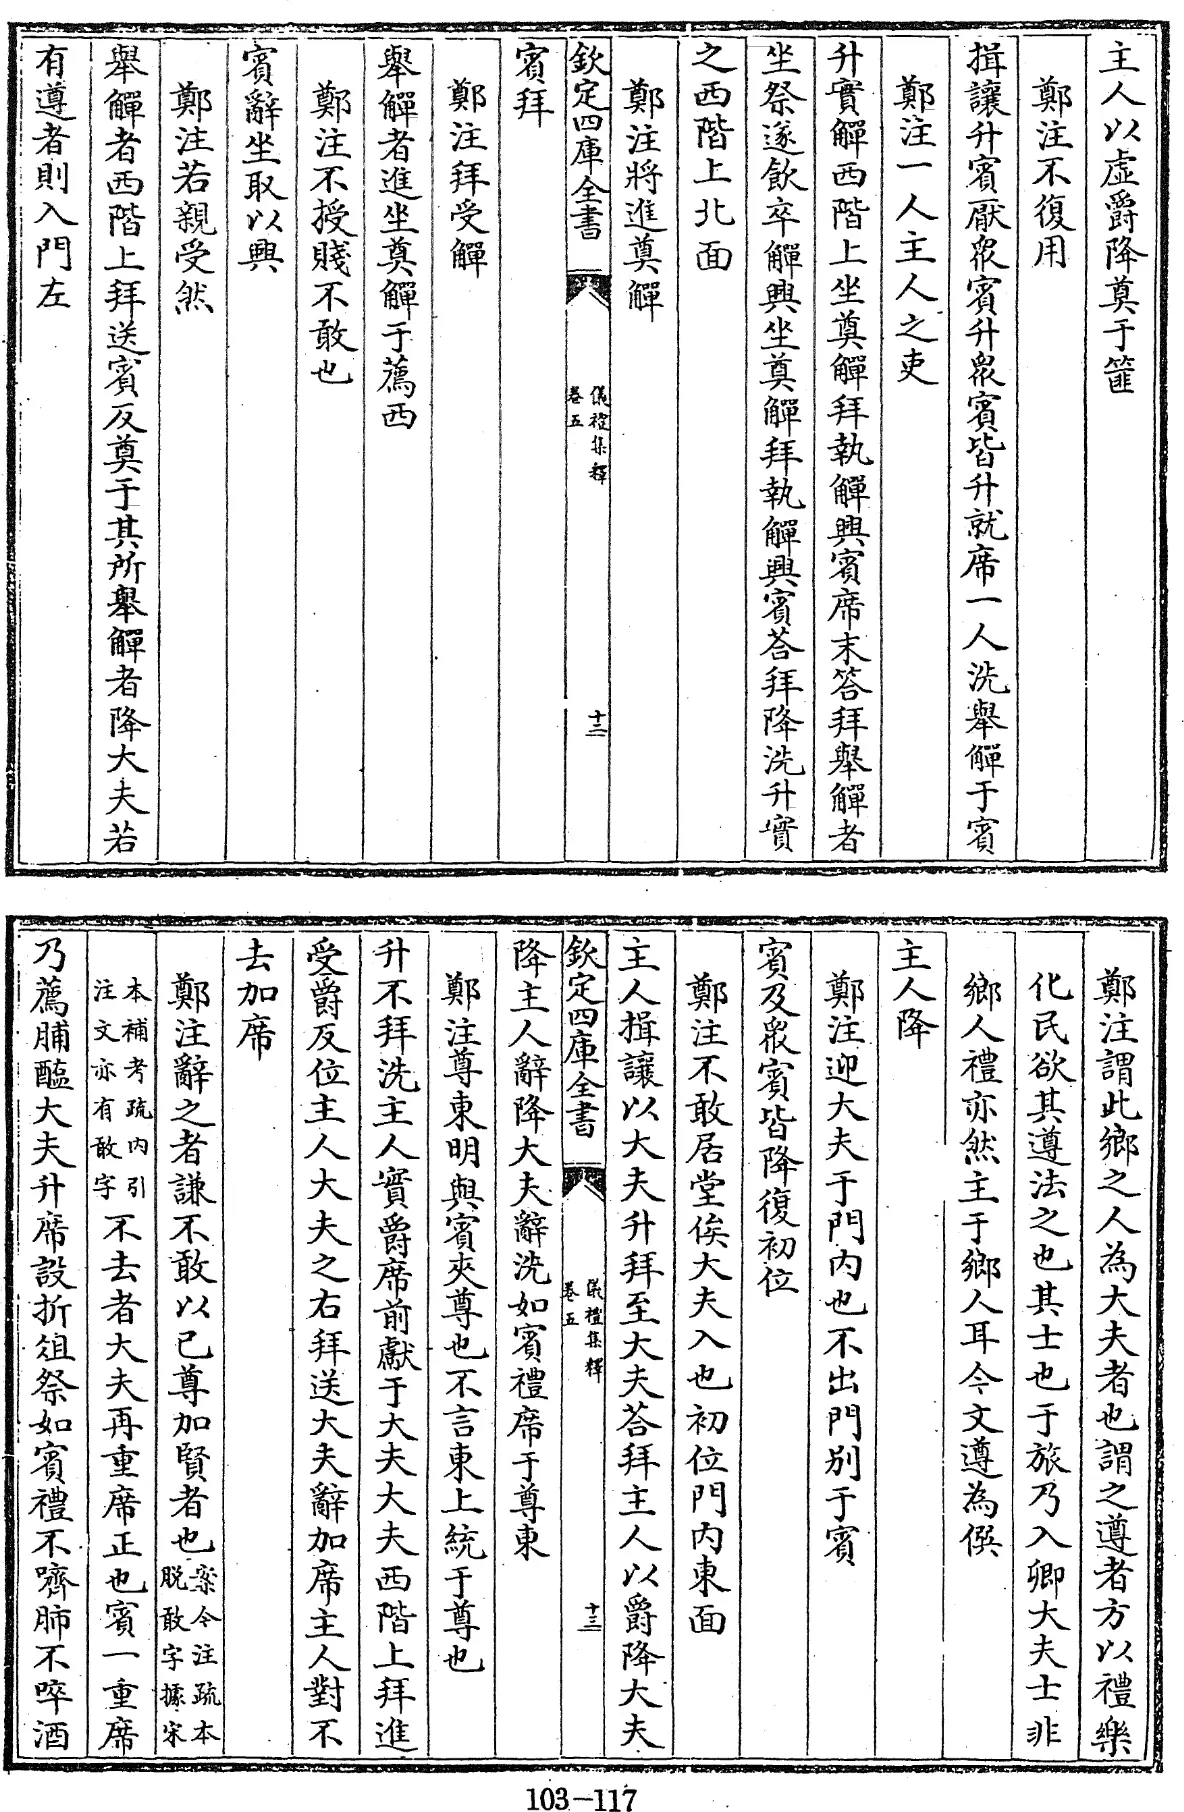 主人以虛爵降奠于篚
鄭注不復用
揖讓升賓厭衆賓升衆賓皆升就席一人洗舉觶于賓
鄭注一人主人之吏
升實觶西階上坐奠觶拜執觶興賓席末答拜舉觶者
坐祭遂飲卒觶興坐奠觶拜執觶興賓荅拜降洗升實
之西階上北面
鄭注將進奠觶
欽定四庫全書
儀禮集釋
卷五
十二
賓拜
鄭注拜受觶
舉觶者進坐奠觶于薦西
鄭注不授賤不敢也
賓辭坐取以興
鄭注若親受然
舉觶者西階上拜送賓反奠于其所舉觶者降大夫若
有遵者則入門左
鄭注謂此鄉之人為大夫者也謂之遵者方以禮樂
化民欲其遵法之也其士也于旅乃入卿大夫士非
鄉人禮亦然主于鄉人耳今文遵為僎
主人降
鄭注迎大夫于門內也不出門別于賓
賓及衆賓皆降復初位
鄭注不敢居堂俟大夫入也初位門內東面
主人揖讓以大夫升拜至大夫荅拜主人以爵降大夫
欽定四庫全書
儀禮集釋
卷五
十三
降主人辭降大夫辭洗如賓禮席于尊東
鄭注尊東明與賓夾尊也不言東上統于尊也
升不拜洗主人實爵席前獻于大夫大夫西階上拜進
受爵反位主人大夫之右拜送大夫辭加席主人對不
去加席
鄭注辭之者謙不敢以已尊加賢者也案今注疏本脫敢字據宋
本補考疏內引注文亦有敢字不去者大夫再重席正也賓一重席
乃薦脯醢大夫升席設折俎祭如賓禮不嚌肺不啐酒
103-117